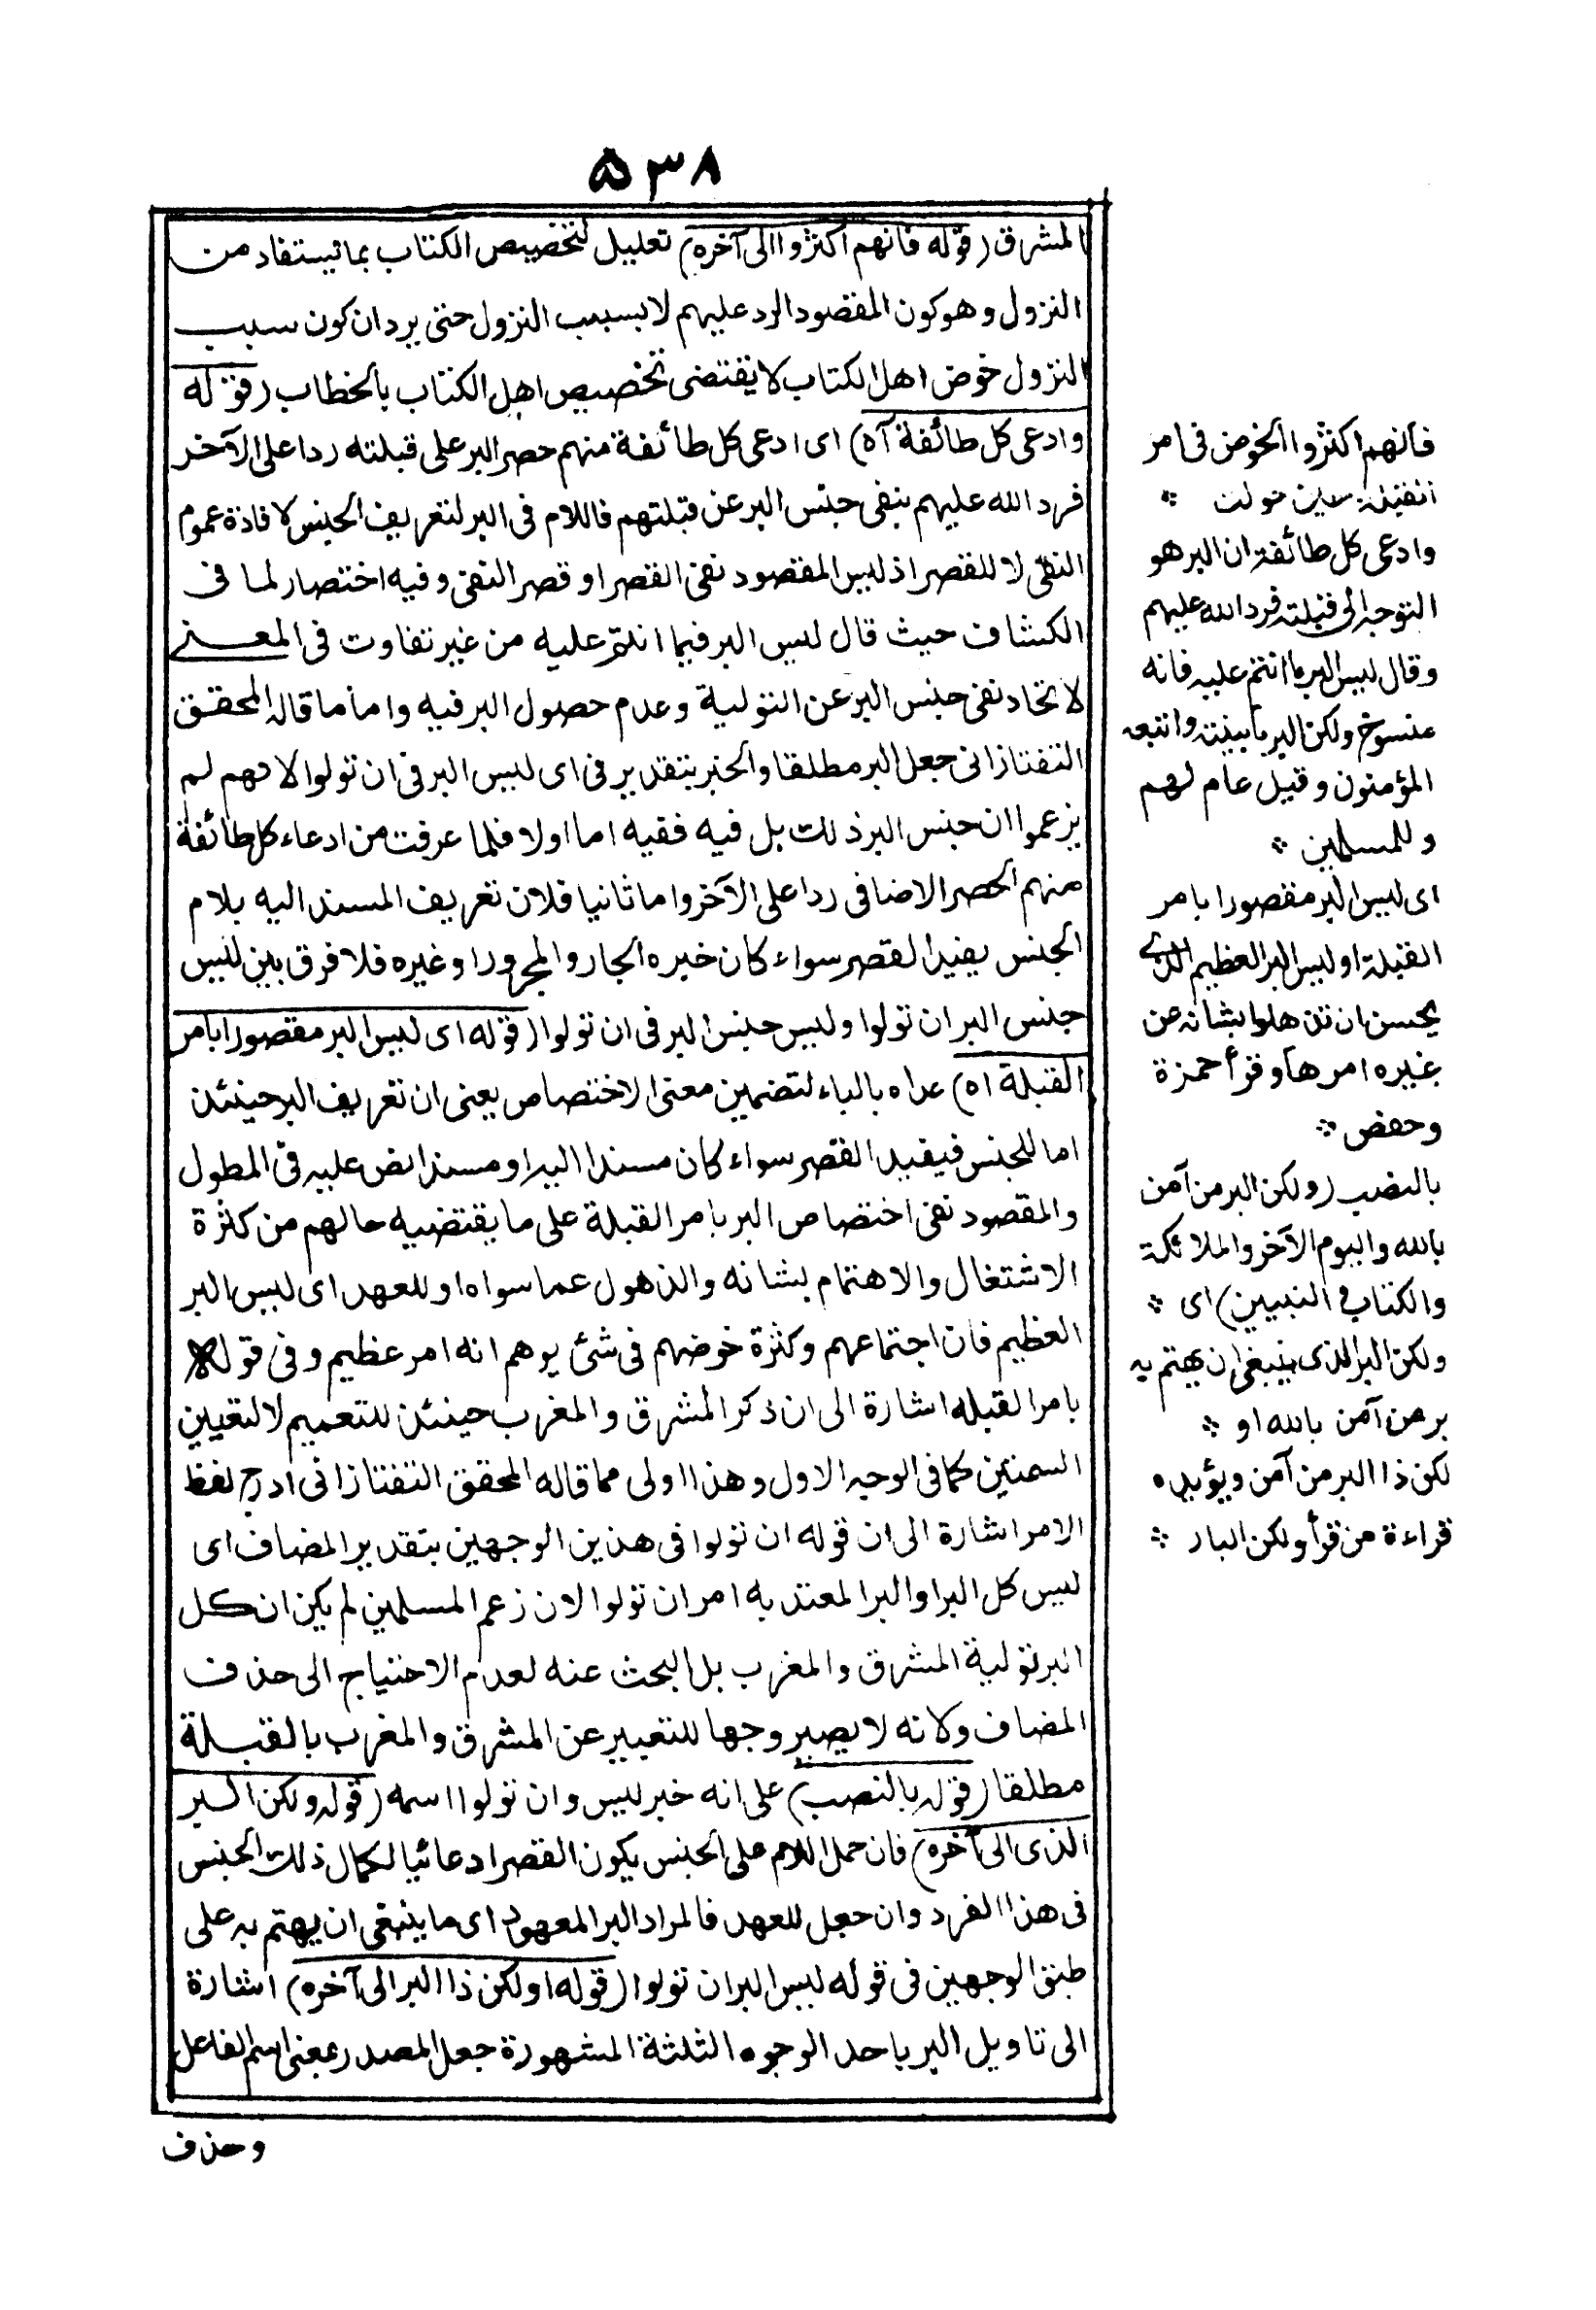 ٥٣٨
المشرق (قوله فانهم اكثروا الى آخره) تعليل لتخصيص الكتاب بما يستفاد من
النزول وهو كون المقصود الرد عليهم لا بسبب النزول حتى يرد ان كون سبب
النزول خوض اهل الكتاب لا يقتضى تخصيص اهل الكتاب بالخطاب (قوله
وادعى كل طائفة آه) اى ادعى كل طائفة منهم حصر البر على قبلته ردا على الآخر
فرد الله عليهم بنفى جنس البر عن قبلتهم فاللام فى البر لتعريف الجنس لافادة عموم
النفى لا للقصر اذ ليس المقصود نفى القصر او قصر النفى وفيه اختصار لما فى
الكشاف حيث قال ليس البر فيما انتم عليه من غير تفاوت فى المعنى
لاتحاد نفى جنس البر عن التولية وعدم حصول البر فيه واما ما قاله المحقق
التفتازانى جعل البر مطلقا والخبر بتقدير فى اى ليس البر فى ان تولوا لانهم لم
يزعموا ان جنس البر ذلك بل فيه ففيه اما اولا فلما عرفت من ادعاء كل طائفة
منهم الحصر الاضافى ردا على الآخر واما ثانيا فلان تعريف المسند اليه بلام
الجنس يفيد القصر سواء كان خبره الجار والمجرور او غيره فلا فرق بين ليس
جنس البر ان تولوا وليس جنس البر فى ان تولوا (قوله اى ليس البر مقصورا بامر
القبلة اه) عداه بالباء لتضمين معنى الاختصاص يعنى ان تعريف البر حينئذ
اما للجنس فيفيد القصر سواء كان مسندا اليه او مسندا نص عليه فى المطول
والمقصود نفى اختصاص البر بامر القبلة على ما يقتضيه حالهم من كثرة
الاشتغال والاهتمام بشانه والذهول عما سواه او للعهد اى ليس البر
العظيم فان اجتماعهم وكثرة خوضهم فى شئ يوهم انه امر عظيم وفى قوله
بامر القبله اشارة الى ان ذكر المشرق والمغرب حينئذ للتعميم لا لتعيين
السمتين كما فى الوجه الاول وهذا اولى مما قاله المحقق التفتازانى ادرج لفظ
الامر اشارة الى ان قوله ان تولوا فى هذين الوجهين بتقدير المضاف اى
ليس كل البر او البر المعتد به امر ان تولوا لان زعم المسلمين لم يكن ان كل
البر تولية المشرق والمغرب بل البحث عنه لعدم الاحتياج الى حذف
المضاف ولانه لا يصير وجها للتعبير عن المشرق والمغرب بالقبلة
مطلقا (قوله بالنصب) على انه خبر ليس وان تولوا اسمه (قوله ولكن البر
الذى الى آخره) فان حمل اللام على الجنس يكون القصر ادعائيا لكمال ذلك الجنس
فى هذا الفرد وان جعل للعهد فالمراد البر المعهود اى ما ينبغى ان يهتم به على
طبق الوجهين فى قوله ليس البر ان تولوا (قوله او لكن ذا البر الى آخره) اشارة
الى تاويل البر باحد الوجوه الثلثة المشهورة جعل المصدر بمعنى اسم الفاعل
وحذف
فانهم اكثروا الخوض فى امر
القبلة حين حولت *
وادعى كل طائفة ان البر هو
التوجه الى قبلته فرد الله عليهم
وقال ليس البر ما انتم عليه فانه
منسوخ ولكن البر ما بينته واتبعه
المؤمنون وقيل عام لهم
وللمسلمين *
اى ليس البر مقصورا بامر
القبلة او ليس البر العظيم الذى
يحسن ان تذهلوا بشانه عن
غيره امرها وقرأ حمزة
وحفص *
بالنصب (ولكن البر من آمن
بالله واليوم الآخر والملائكة
والكتاب والنبيين) اى *
ولكن البر الذى ينبغى ان يهتم به
بر من آمن بالله او *
لكن ذا البر من آمن ويؤيده
قراءة من قرأ ولكن البار *